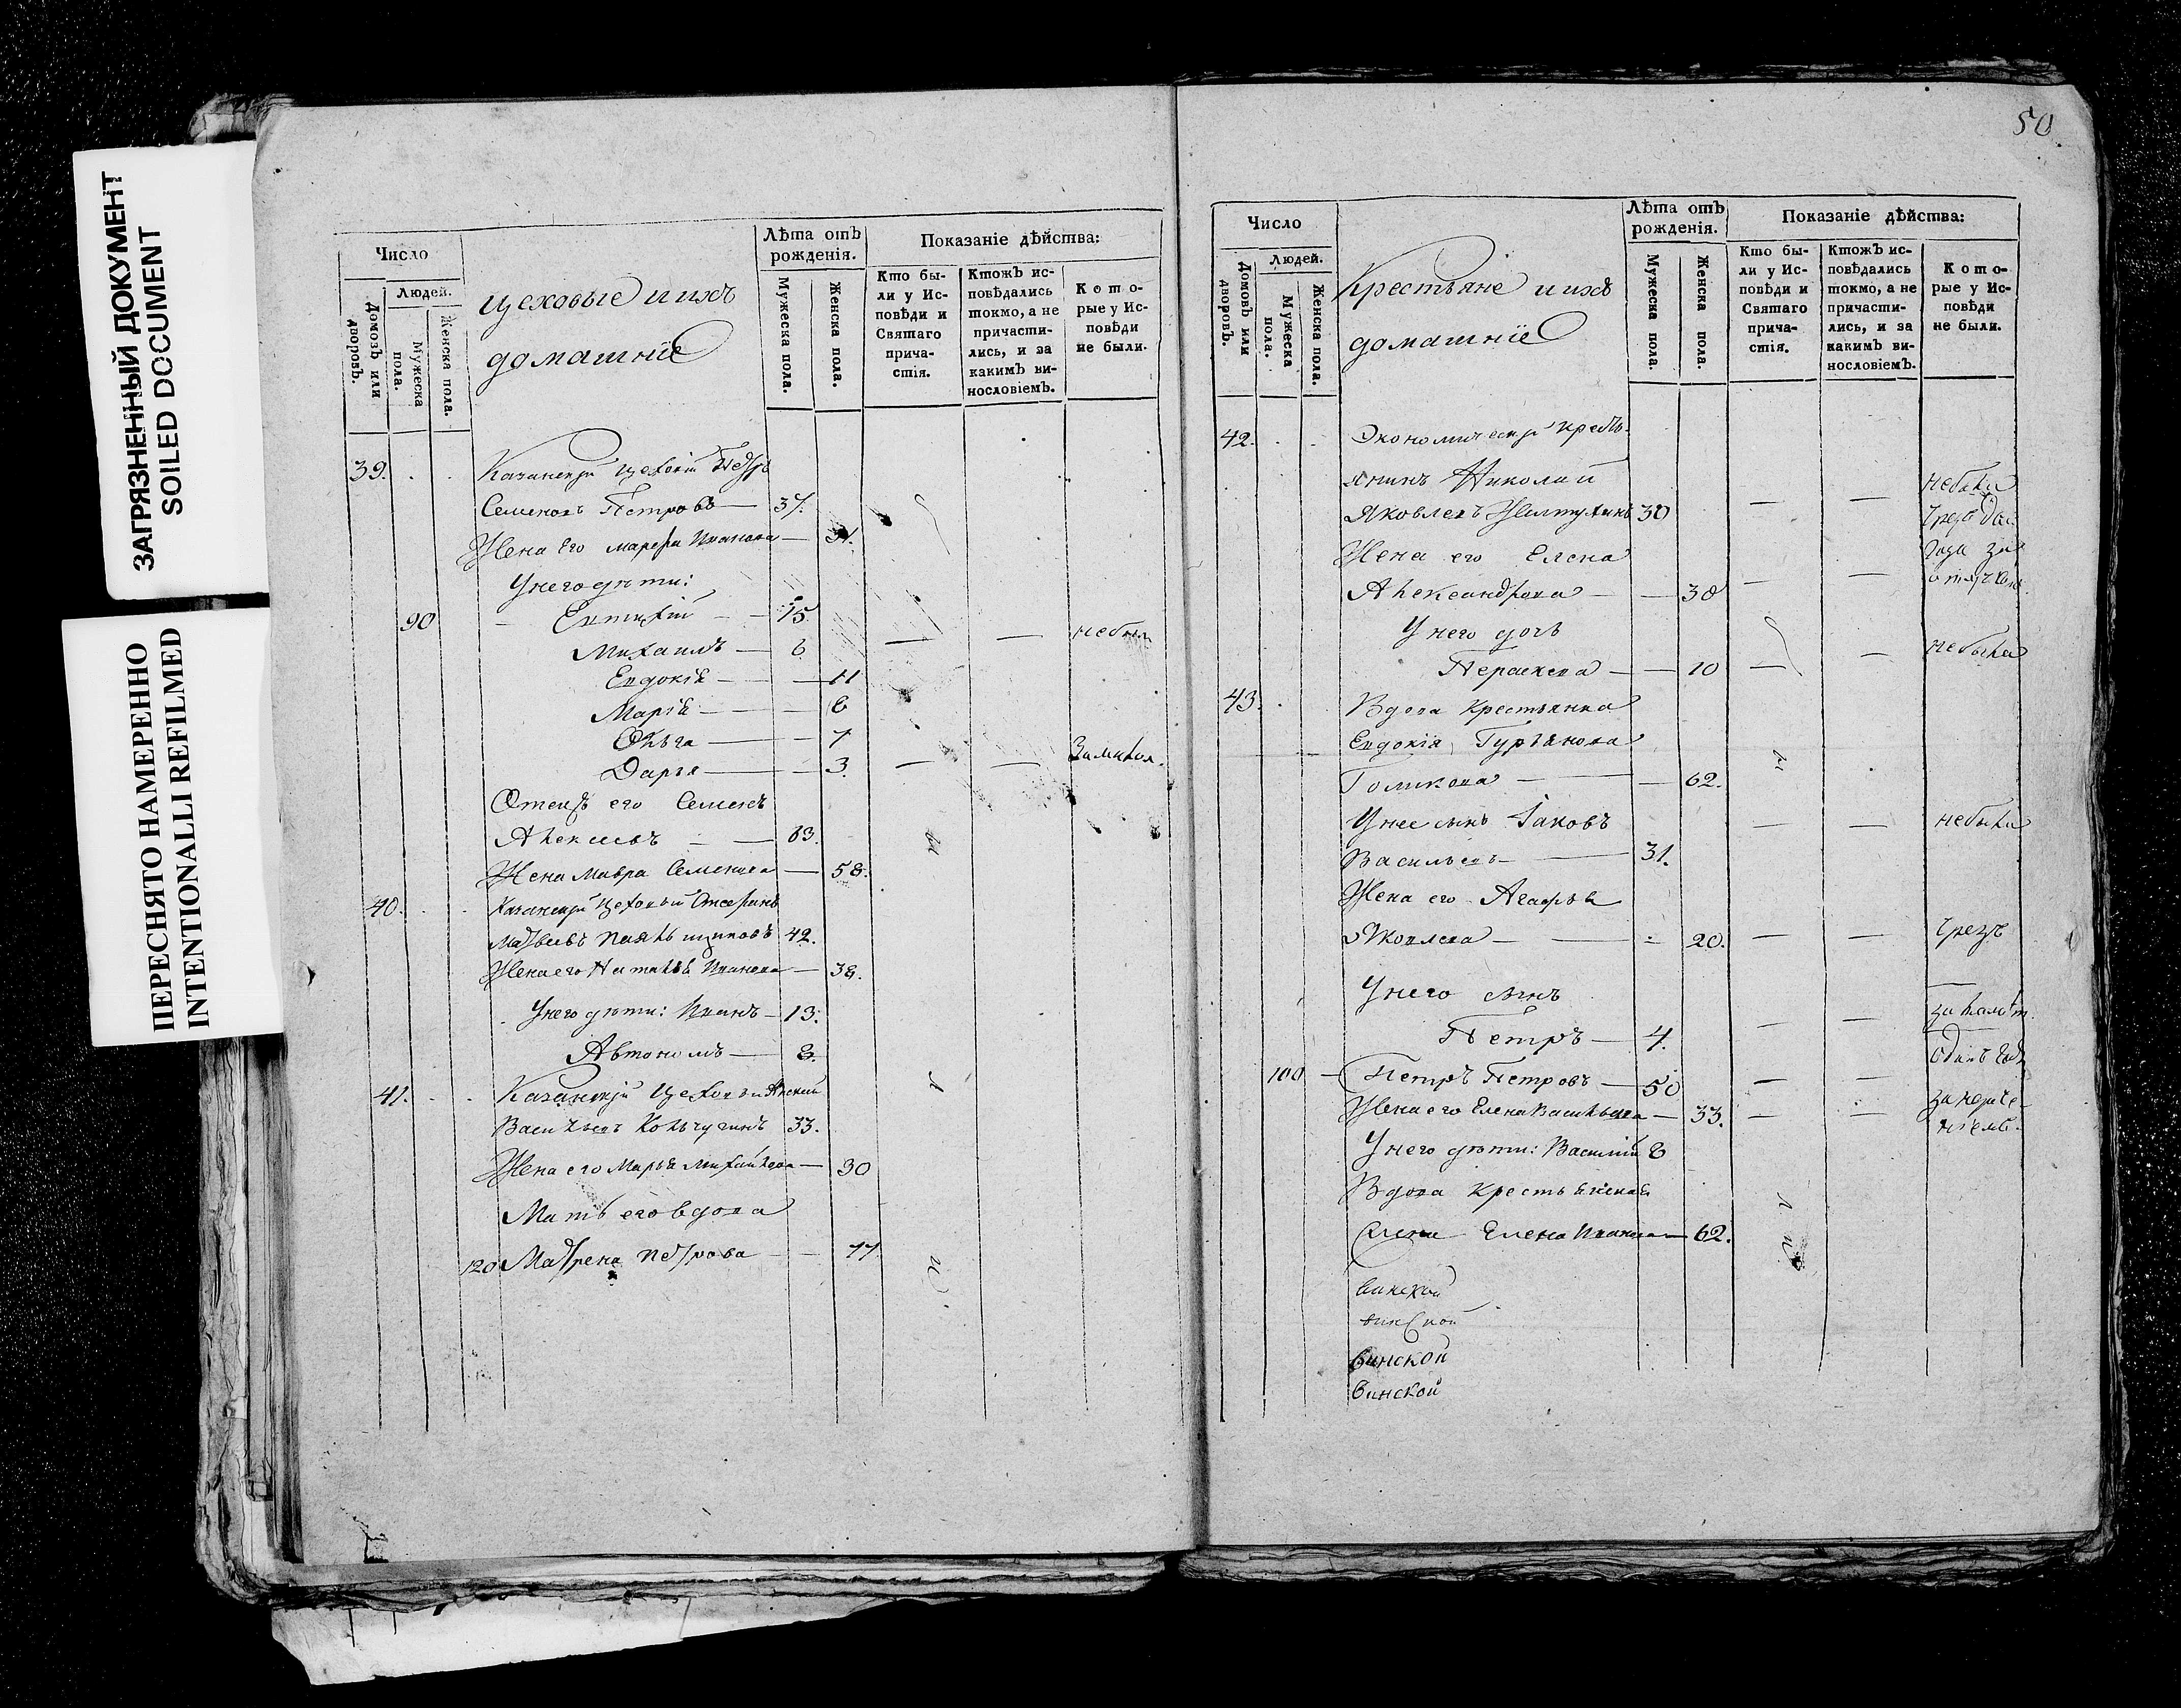 ЗАГРЯЗНЕННЫЙ ДОКУМЕНТ
SOILED DOCUMENT
ПЕРЕСНЯТО НАМЕРЕННО
INTENTIONALLI REFILMED
Число
Людей.
Домовъ или дворовъ.
Мужеска пола.
Женска пола.
цеховые и ихъ
домашніе
Лѣта отъ рожденія.
Мужеска пола.
Женска пола.
Показаніе дѣйства:
Кто были у Исповѣди и Святаго причастія.
Ктожъ исповѣдались токмо, а не причастились, и за какимъ винословіемъ.
Которые у Исповѣди не были.
39. Казанскій цеховій Петръ
Семеновъ Петровъ — 37.
Жена Его Марфа Иванова — 31.
У него дѣти:
90 Евтихій — 15.
Михаилъ — 6 — — не были
Евдокія — 11
Марія — 6
Ольга — 7
Дарья — 3. — —
Отецъ его Семенъ
Алексѣевъ — 83.
Жена Мавра Семенова — 58.
40. Казанскій Цеховый
Матвѣевъ 42.
Жена его Наталья Иванова — 38.
У него дѣти: Иванъ — 13.
Автономъ — 8.
41. Казанскій Цеховый
Васильевъ Кольчугинъ 33.
Жена его Марья Михайлова — 30
Мать его вдова
120 Матрена Петрова — 77
50
Число
Людей.
Домовъ или дворовъ.
Мужеска пола.
Женска пола.
Крестьяне и ихъ
домашніе
Лѣта отъ рожденія.
Мужеска пола.
Женска пола.
Показаніе дѣйства:
Кто были у Исповѣди и Святаго причастія.
Ктожъ исповѣдались токмо, а не причастились, и за какимъ винословіемъ.
Которые у Исповѣди не были.
42. Экономическій кресть-
янинъ Николай не были
Яковлевъ 30 — —
Жена его Елена года за
Александрова — 30 — —
У него дочь
Параскева — 10 — — не были
43. Вдова крестьянка
Евдокія Гурьянова
Голикова — 62.
У нее сынъ Іаковъ — — не были
Васильевъ — 31.
Жена его Агафья
Яковлева — 20. — — чрезъ
У него сынъ
Петръ — 4. — —
100 Петръ Петровъ — 50 — — одинъ годъ
Жена его Елена Васильева — 33. — —
У него дѣти: Василій 6
Вдова крестьянская
Елена Иванова — 62.
винской
винской
винской
винской